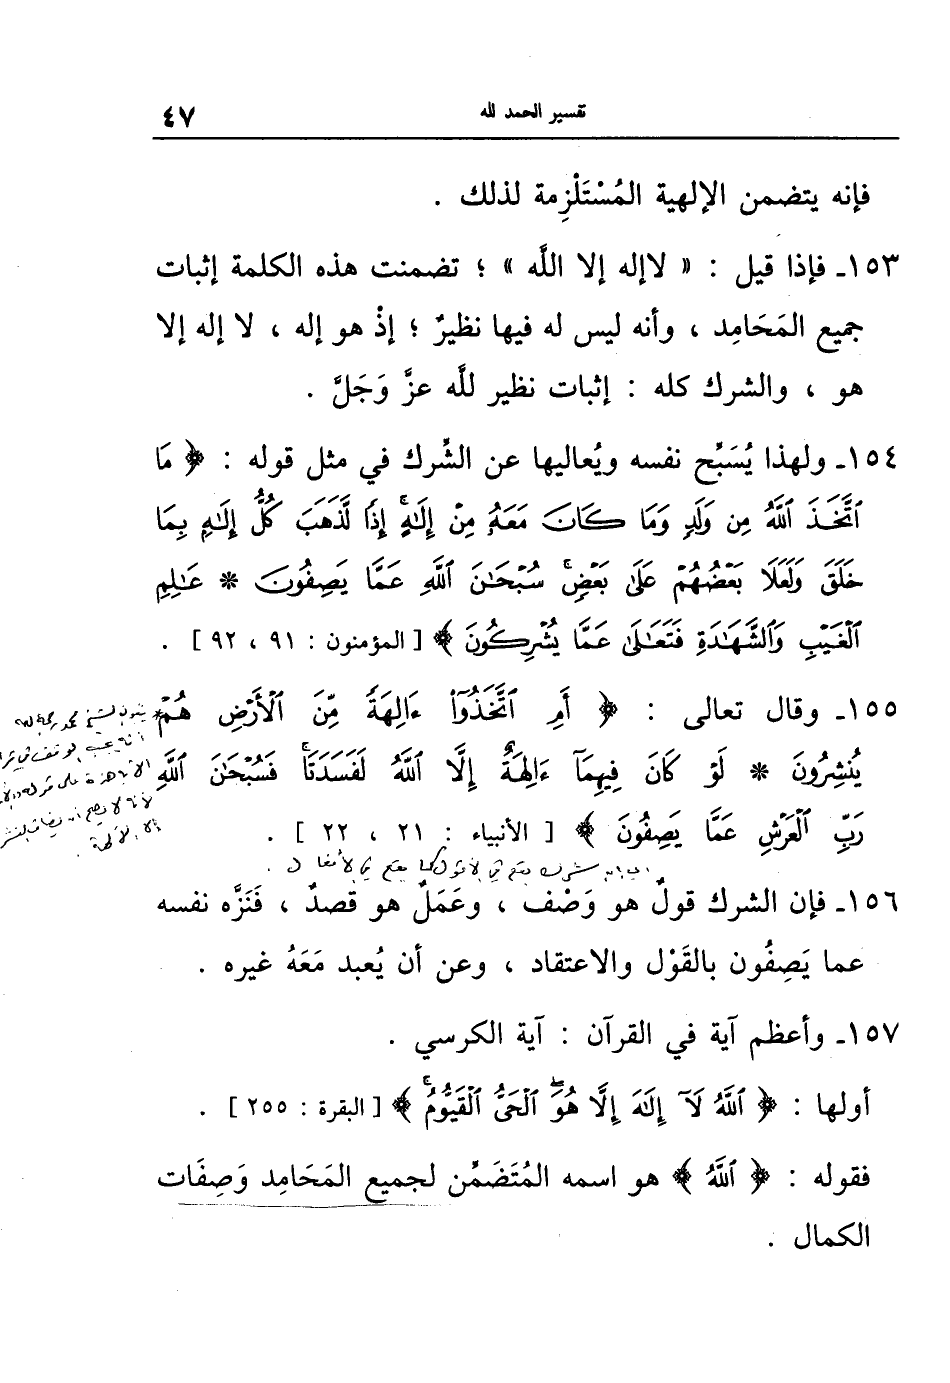 تفسير الحمد لله
٤٧
فإنه يتضمن الإلهية المُسْتَلْزِمة لذلك .
١٥٣ـ فإذا قيل : « لاإله إلا اللَّه » ؛ تضمنت هذه الكلمة إثبات
جميع المَحَامِد ، وأنه ليس له فيها نظيرٌ ؛ إذْ هو إله ، لا إله إلا
هو ، والشرك كله : إثبات نظير للَّه عزَّ وَجَلَّ .
١٥٤ـ ولهذا يُسَبِّح نفسه ويُعاليها عن الشِّرك في مثل قوله : ﴿ مَا
ٱتَّخَذَ ٱللَّهُ مِن وَلَدٍ وَمَا كَانَ مَعَهُۥ مِنْ إِلَٰهٍ ۚ إِذًا لَّذَهَبَ كُلُّ إِلَٰهٍۭ بِمَا
خَلَقَ وَلَعَلَا بَعْضُهُمْ عَلَىٰ بَعْضٍ ۚ سُبْحَٰنَ ٱللَّهِ عَمَّا يَصِفُونَ * عَٰلِمِ
ٱلْغَيْبِ وَٱلشَّهَٰدَةِ فَتَعَٰلَىٰ عَمَّا يُشْرِكُونَ ﴾ [ المؤمنون : ٩١ ، ٩٢ ] .
١٥٥ـ وقال تعالى : ﴿ أَمِ ٱتَّخَذُوٓا۟ ءَالِهَةً مِّنَ ٱلْأَرْضِ هُمْ
يُنشِرُونَ * لَوْ كَانَ فِيهِمَآ ءَالِهَةٌ إِلَّا ٱللَّهُ لَفَسَدَتَا ۚ فَسُبْحَٰنَ ٱللَّهِ
رَبِّ ٱلْعَرْشِ عَمَّا يَصِفُونَ ﴾ [ الأنبياء : ٢١ ، ٢٢ ] .
١٥٦ـ فإن الشرك قولٌ هو وَصْف ، وعَمَلٌ هو قصدٌ ، فَنَزَّه نفسه
عما يَصِفُون بالقَوْل والاعتقاد ، وعن أن يُعبد مَعَهُ غيره .
١٥٧ـ وأعظم آية في القرآن : آية الكرسي .
أولها : ﴿ ٱللَّهُ لَآ إِلَٰهَ إِلَّا هُوَ ٱلْحَىُّ ٱلْقَيُّومُ ۚ ﴾ [ البقرة : ٢٥٥ ] .
فقوله : ﴿ ٱللَّهُ ﴾ هو اسمه المُتَضَمِّن لجميع المَحَامِد وَصِفَات
الكمال .